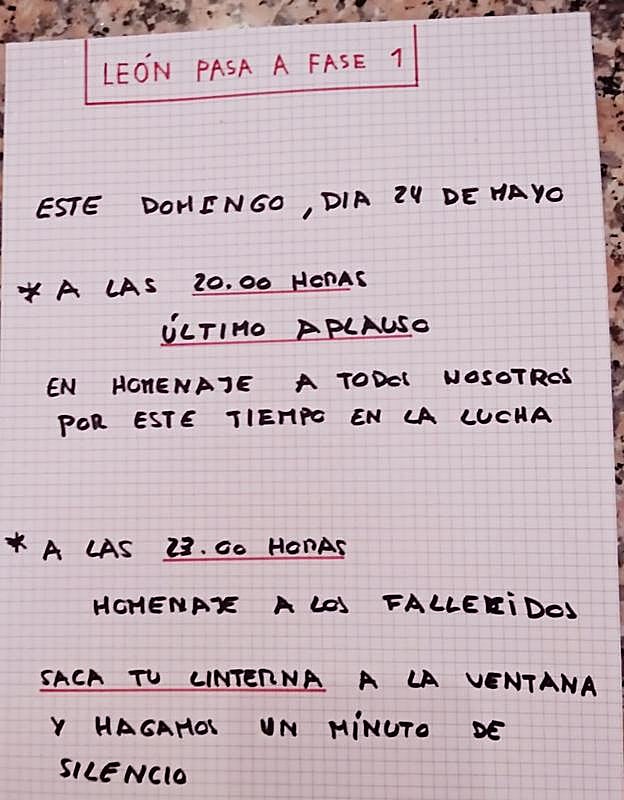 LEÓN PASA A FASE 1
ESTE DOMINGO, DIA 24 DE MAYO
* A LAS 20.00 HORAS
ÚLTIMO APLAUSO
EN HOMENAJE A TODOS NOSOTROS
POR ESTE TIEMPO EN LA LUCHA
* A LAS 23.00 HORAS
HOMENAJE A LOS FALLECIDOS
SACA TU LINTERNA A LA VENTANA
Y HAGAMOS UN MÍNUTO DE
SILENCIO